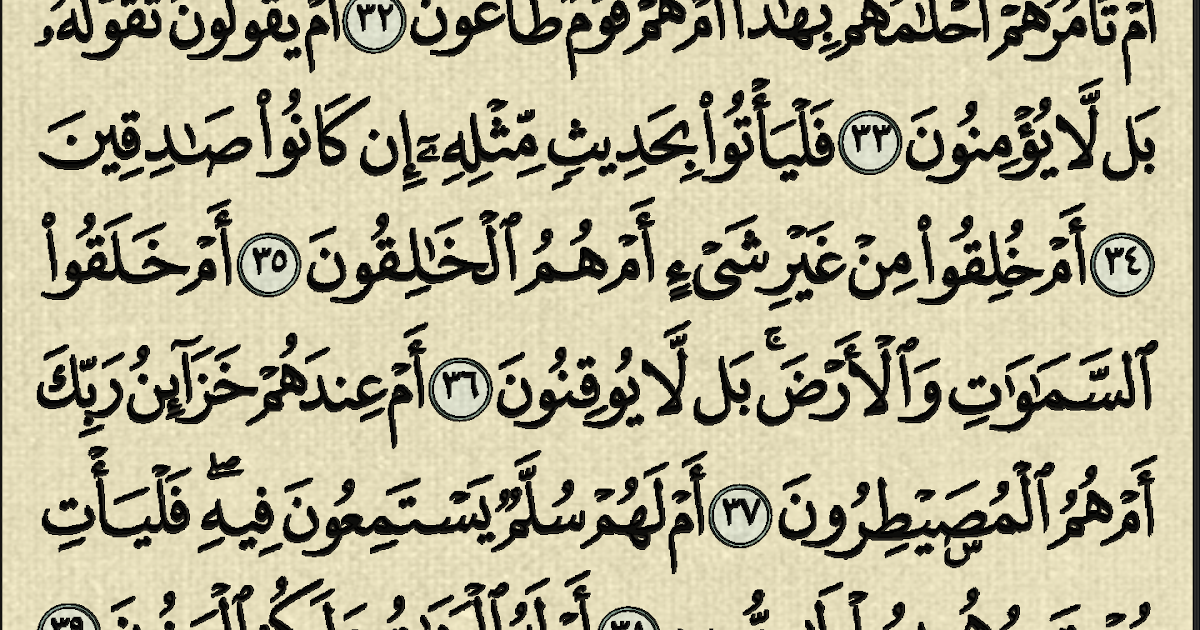 أَمْ تَأْمُرُهُمْ أَحْلَٰمُهُم بِهَٰذَآ أَمْ هُمْ قَوْمٌ طَاغُونَ ٣٢ أَمْ يَقُولُونَ تَقَوَّلَهُۥ
بَل لَّا يُؤْمِنُونَ ٣٣ فَلْيَأْتُوا۟ بِحَدِيثٍ مِّثْلِهِۦٓ إِن كَانُوا۟ صَٰدِقِينَ
٣٤ أَمْ خُلِقُوا۟ مِنْ غَيْرِ شَىْءٍ أَمْ هُمُ ٱلْخَٰلِقُونَ ٣٥ أَمْ خَلَقُوا۟
ٱلسَّمَٰوَٰتِ وَٱلْأَرْضَ ۚ بَل لَّا يُوقِنُونَ ٣٦ أَمْ عِندَهُمْ خَزَآئِنُ رَبِّكَ
أَمْ هُمُ ٱلْمُصَۣيْطِرُونَ ٣٧ أَمْ لَهُمْ سُلَّمٌ يَسْتَمِعُونَ فِيهِ ۖ فَلْيَأْتِ
٣٨ أَمْ لَهُ ٱلْبَنَٰتُ وَلَكُمُ ٱلْبَنُونَ ٣٩